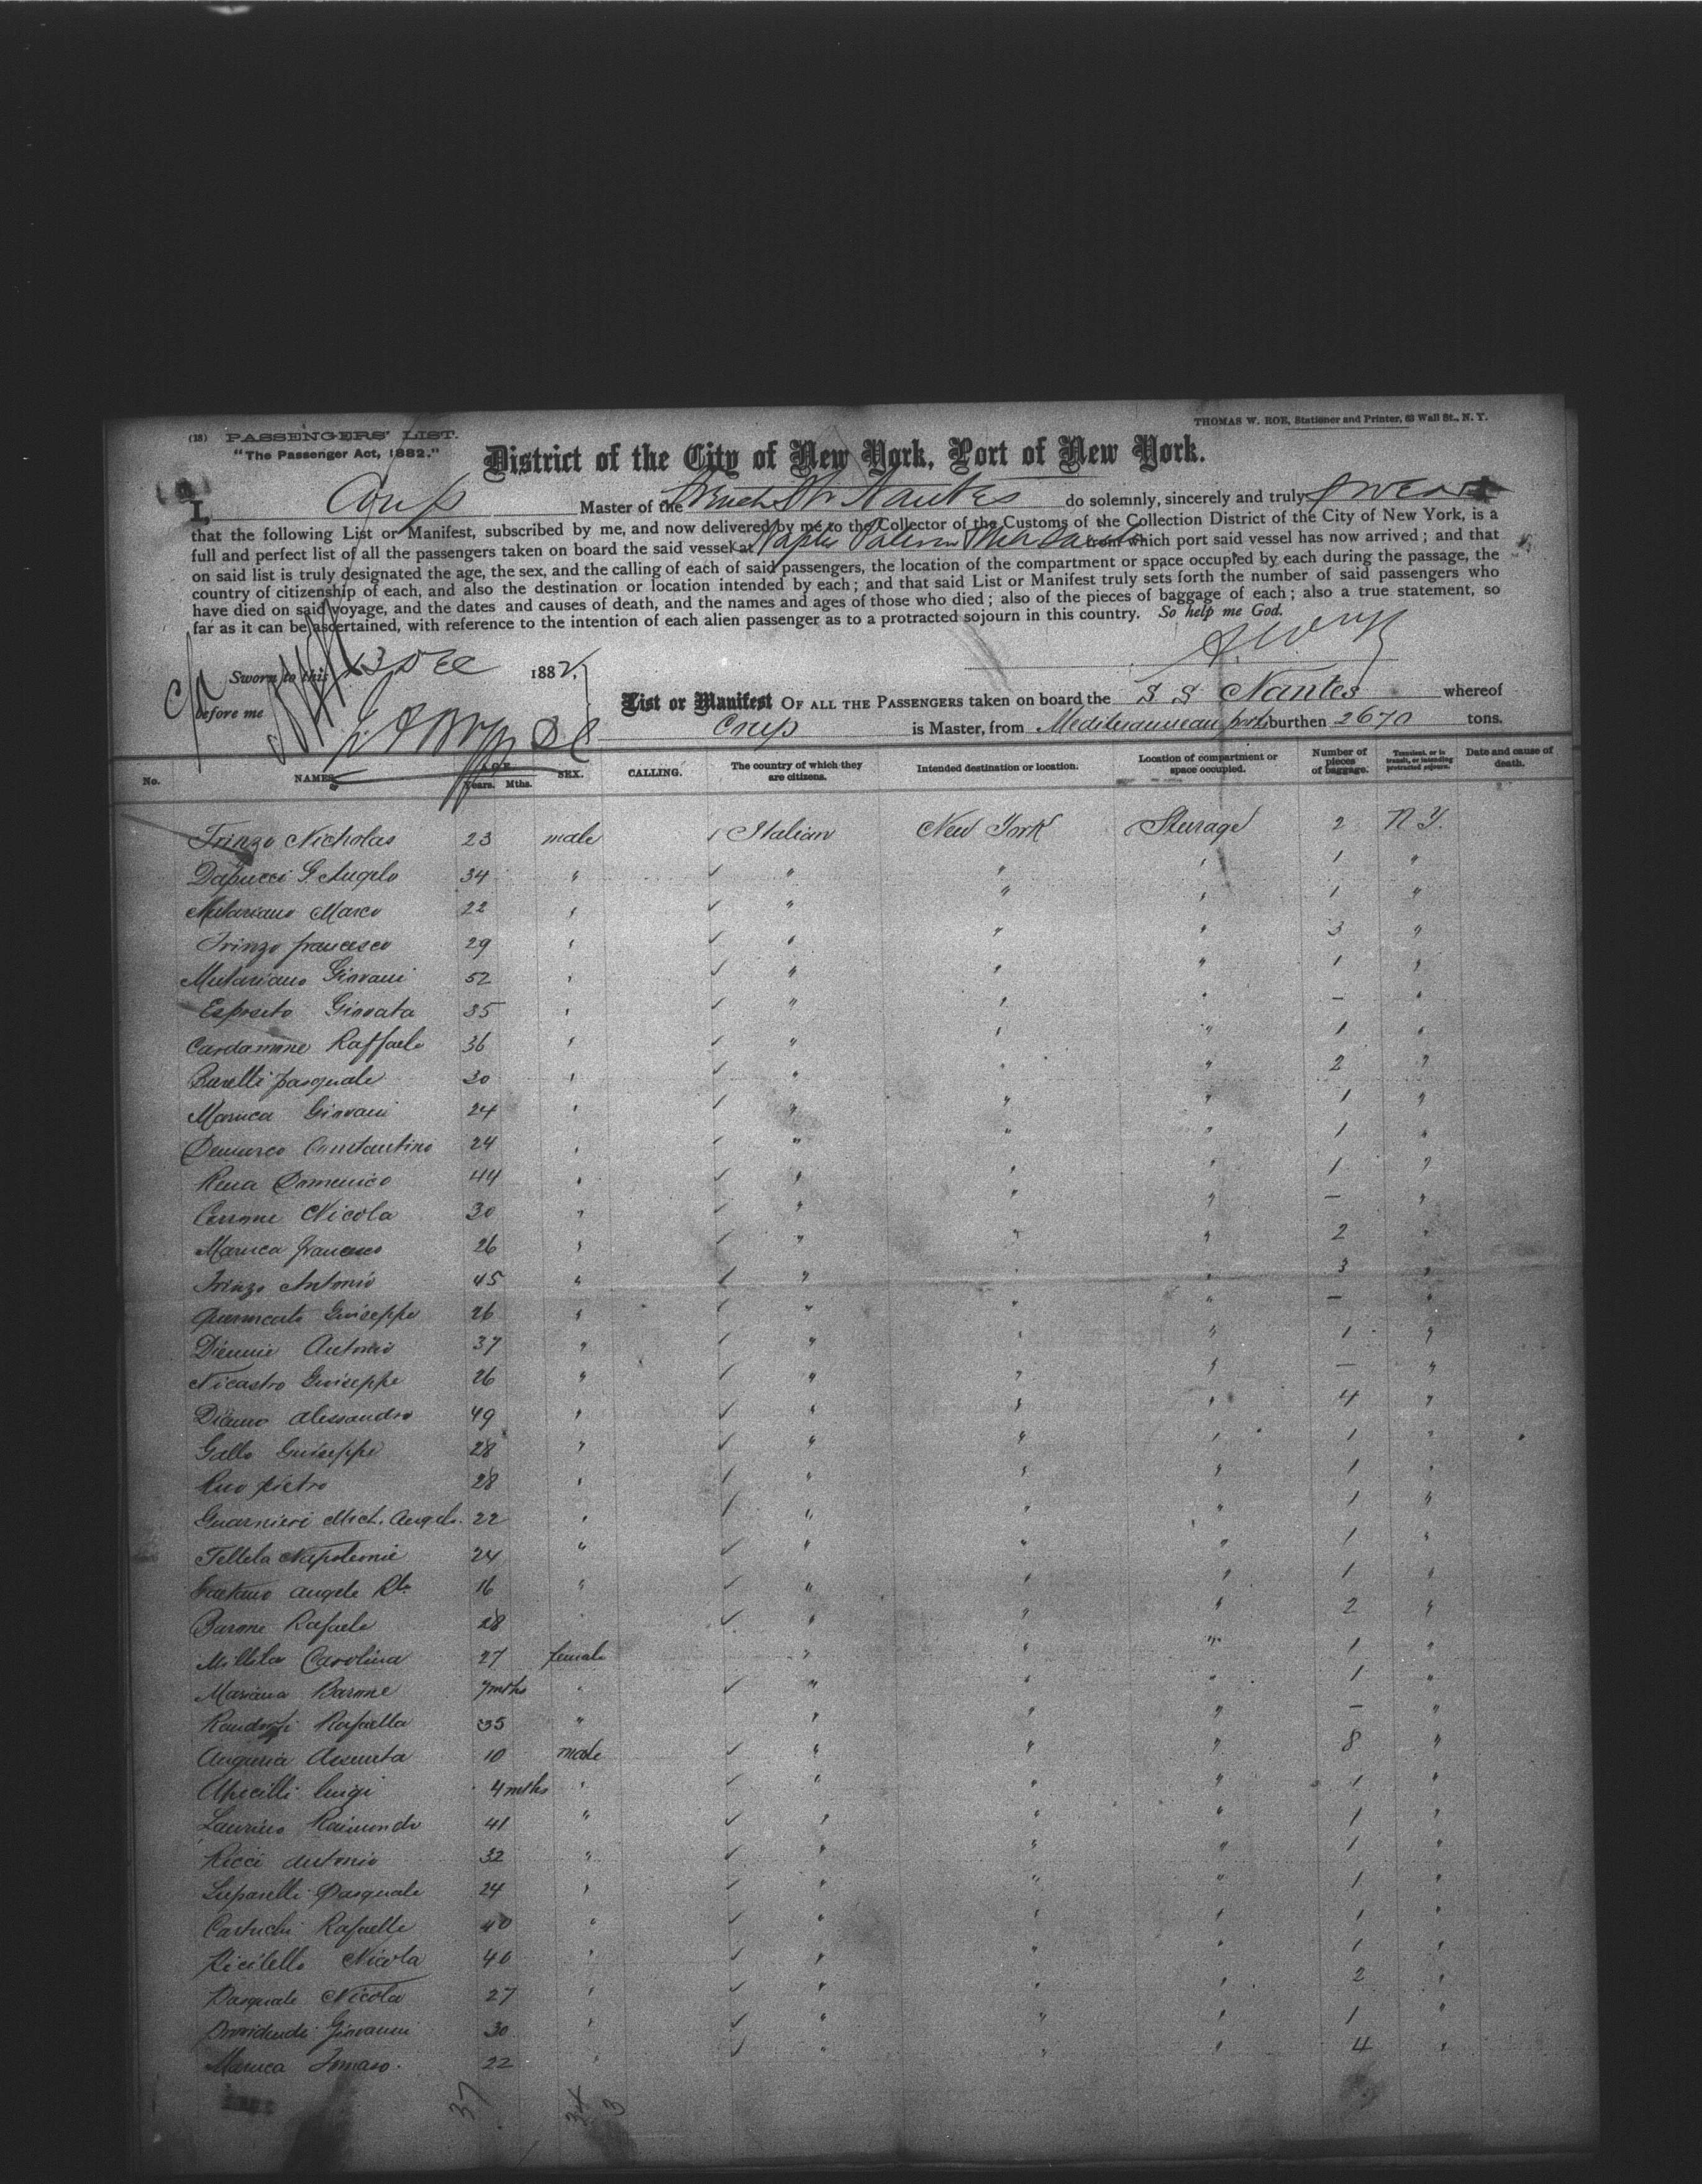 (18) PASSENGERS' LIST.
THOMAS W. ROE, Stationer and Printer, 63 Wall St., N. Y.
"The Passenger Act, 1882."
District of the City of New York, Port of New York.
I, Coup Master of the French Str Nantes do solemnly, sincerely and truly swear
that the following List or Manifest, subscribed by me, and now delivered by me to the Collector of the Customs of the Collection District of the City of New York, is a
full and perfect list of all the passengers taken on board the said vessel at Naples from which port said vessel has now arrived; and that
on said list is truly designated the age, the sex, and the calling of each of said passengers, the location of the compartment or space occupied by each during the passage, the
country of citizenship of each, and also the destination or location intended by each; and that said List or Manifest truly sets forth the number of said passengers who
have died on said voyage, and the dates and causes of death, and the names and ages of those who died; also of the pieces of baggage of each; also a true statement, so
far as it can be ascertained, with reference to the intention of each alien passenger as to a protracted sojourn in this country. So help me God.
Sworn to this 13 Dec 1882,
before me
List or Manifest OF ALL THE PASSENGERS taken on board the S S Nantes whereof
Coup is Master, from Mediterannean ports burthen 2670 tons.
No. NAMES. AGE. Years. Mths. SEX. CALLING. The country of which they are citizens. Intended destination or location. Location of compartment or space occupied. Number of pieces of baggage. Transient, or in transit, or intending protracted sojourn. Date and cause of death.
Trinzo Nicholas 23 male Italian New York Sterage 2 N Y.
Dapucci G. Angelo 34 " " " " 1 "
Mutariano Marco 22 " " " " 1 "
Trinzo francesco 29 " " " " 3 "
Mutariano Giovani 52 " " " " 1 "
Esposito Gionata 35 " " " " – "
Cardamone Raffaele 36 " " " " 1 "
Barelli pasquale 30 " " " " 2 "
Maruca Giovani 24 " " " " 1 "
Demarco Constantino 24 " " " " 1 "
Rena Domenico 44 " " " " 1 "
Cerrone Nicola 30 " " " " – "
Maruca francesco 26 " " " " 2 "
Trinzo Antonio 45 " " " " 3 "
Giuseppe 26 " " " " – "
Antonio 37 " " " " 1 "
Nicastro Giuseppe 26 " " " " – "
Alessandro 49 " " " " 4 "
Gallo Guiseppe 28 " " " " 1 "
pietro 28 " " " " 1 "
Guarnieri Mich. Angelo. 22 " " " " 1 "
24 " " " " 1 "
Gaetano angelo 16 " " " " 1 "
Barone Rafaele 28 " " " " 2 "
Carolina 27 female " " " 1 "
Mariana Barone 7 mths " " " " 1 "
Rafaella 35 " " " " – "
Assunta 10 male " " " 8 "
luigi 4 mths " " " " 1 "
Laurino Raimondo 41 " " " " 1 "
Ricci Antonio 32 " " " " 1 "
Luparelli Pasquale 24 " " " " 1 "
Rafaelle 40 " " " " 1 "
Ricitello Nicola 40 " " " " 1 "
Pasquale Nicola 27 " " " " 2 "
Giovanni 30 " " " " 1 "
Maruca Tomaso. 22 " " " " 4 "
37 34 3